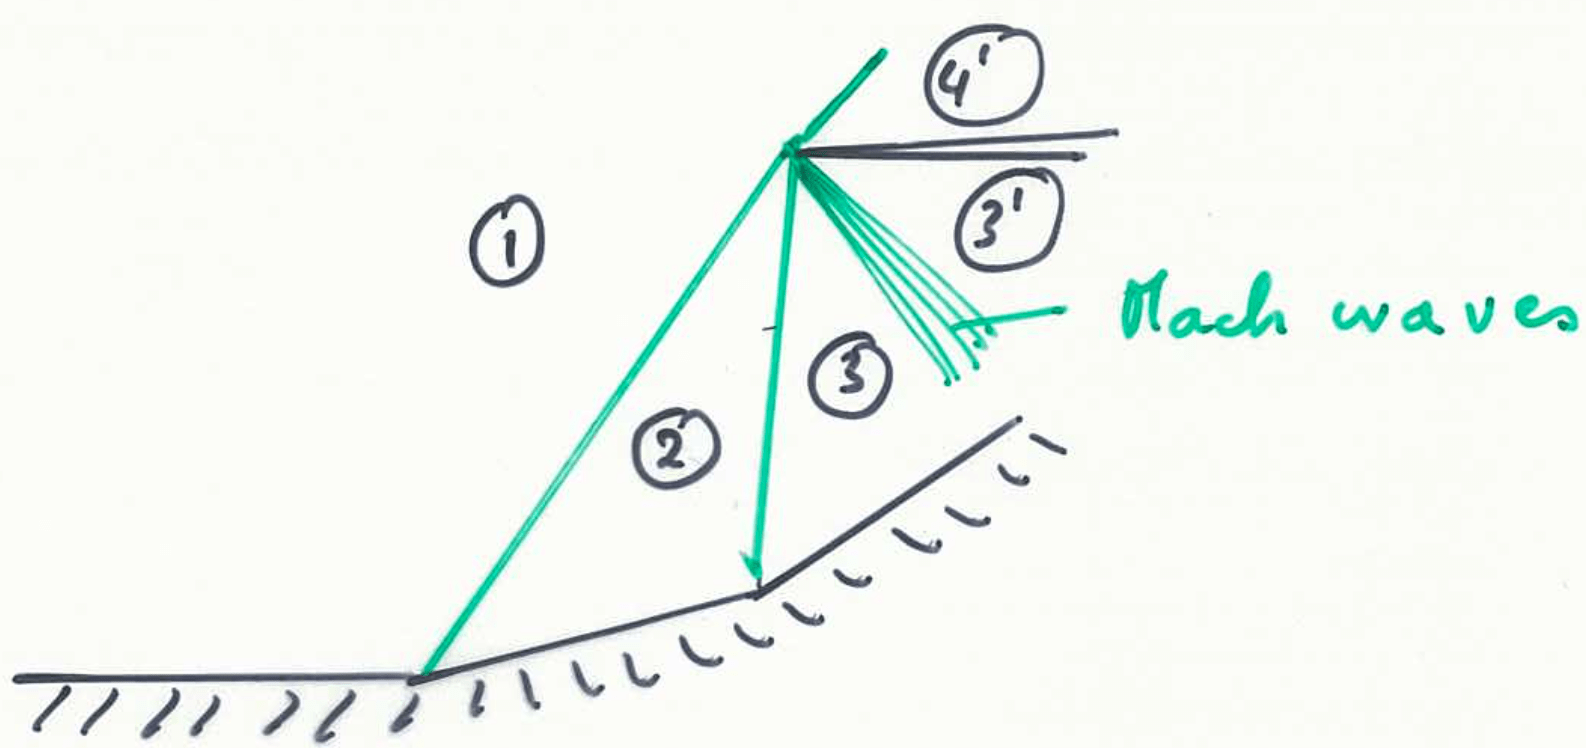 4'
1
3'
Mach waves
3
2